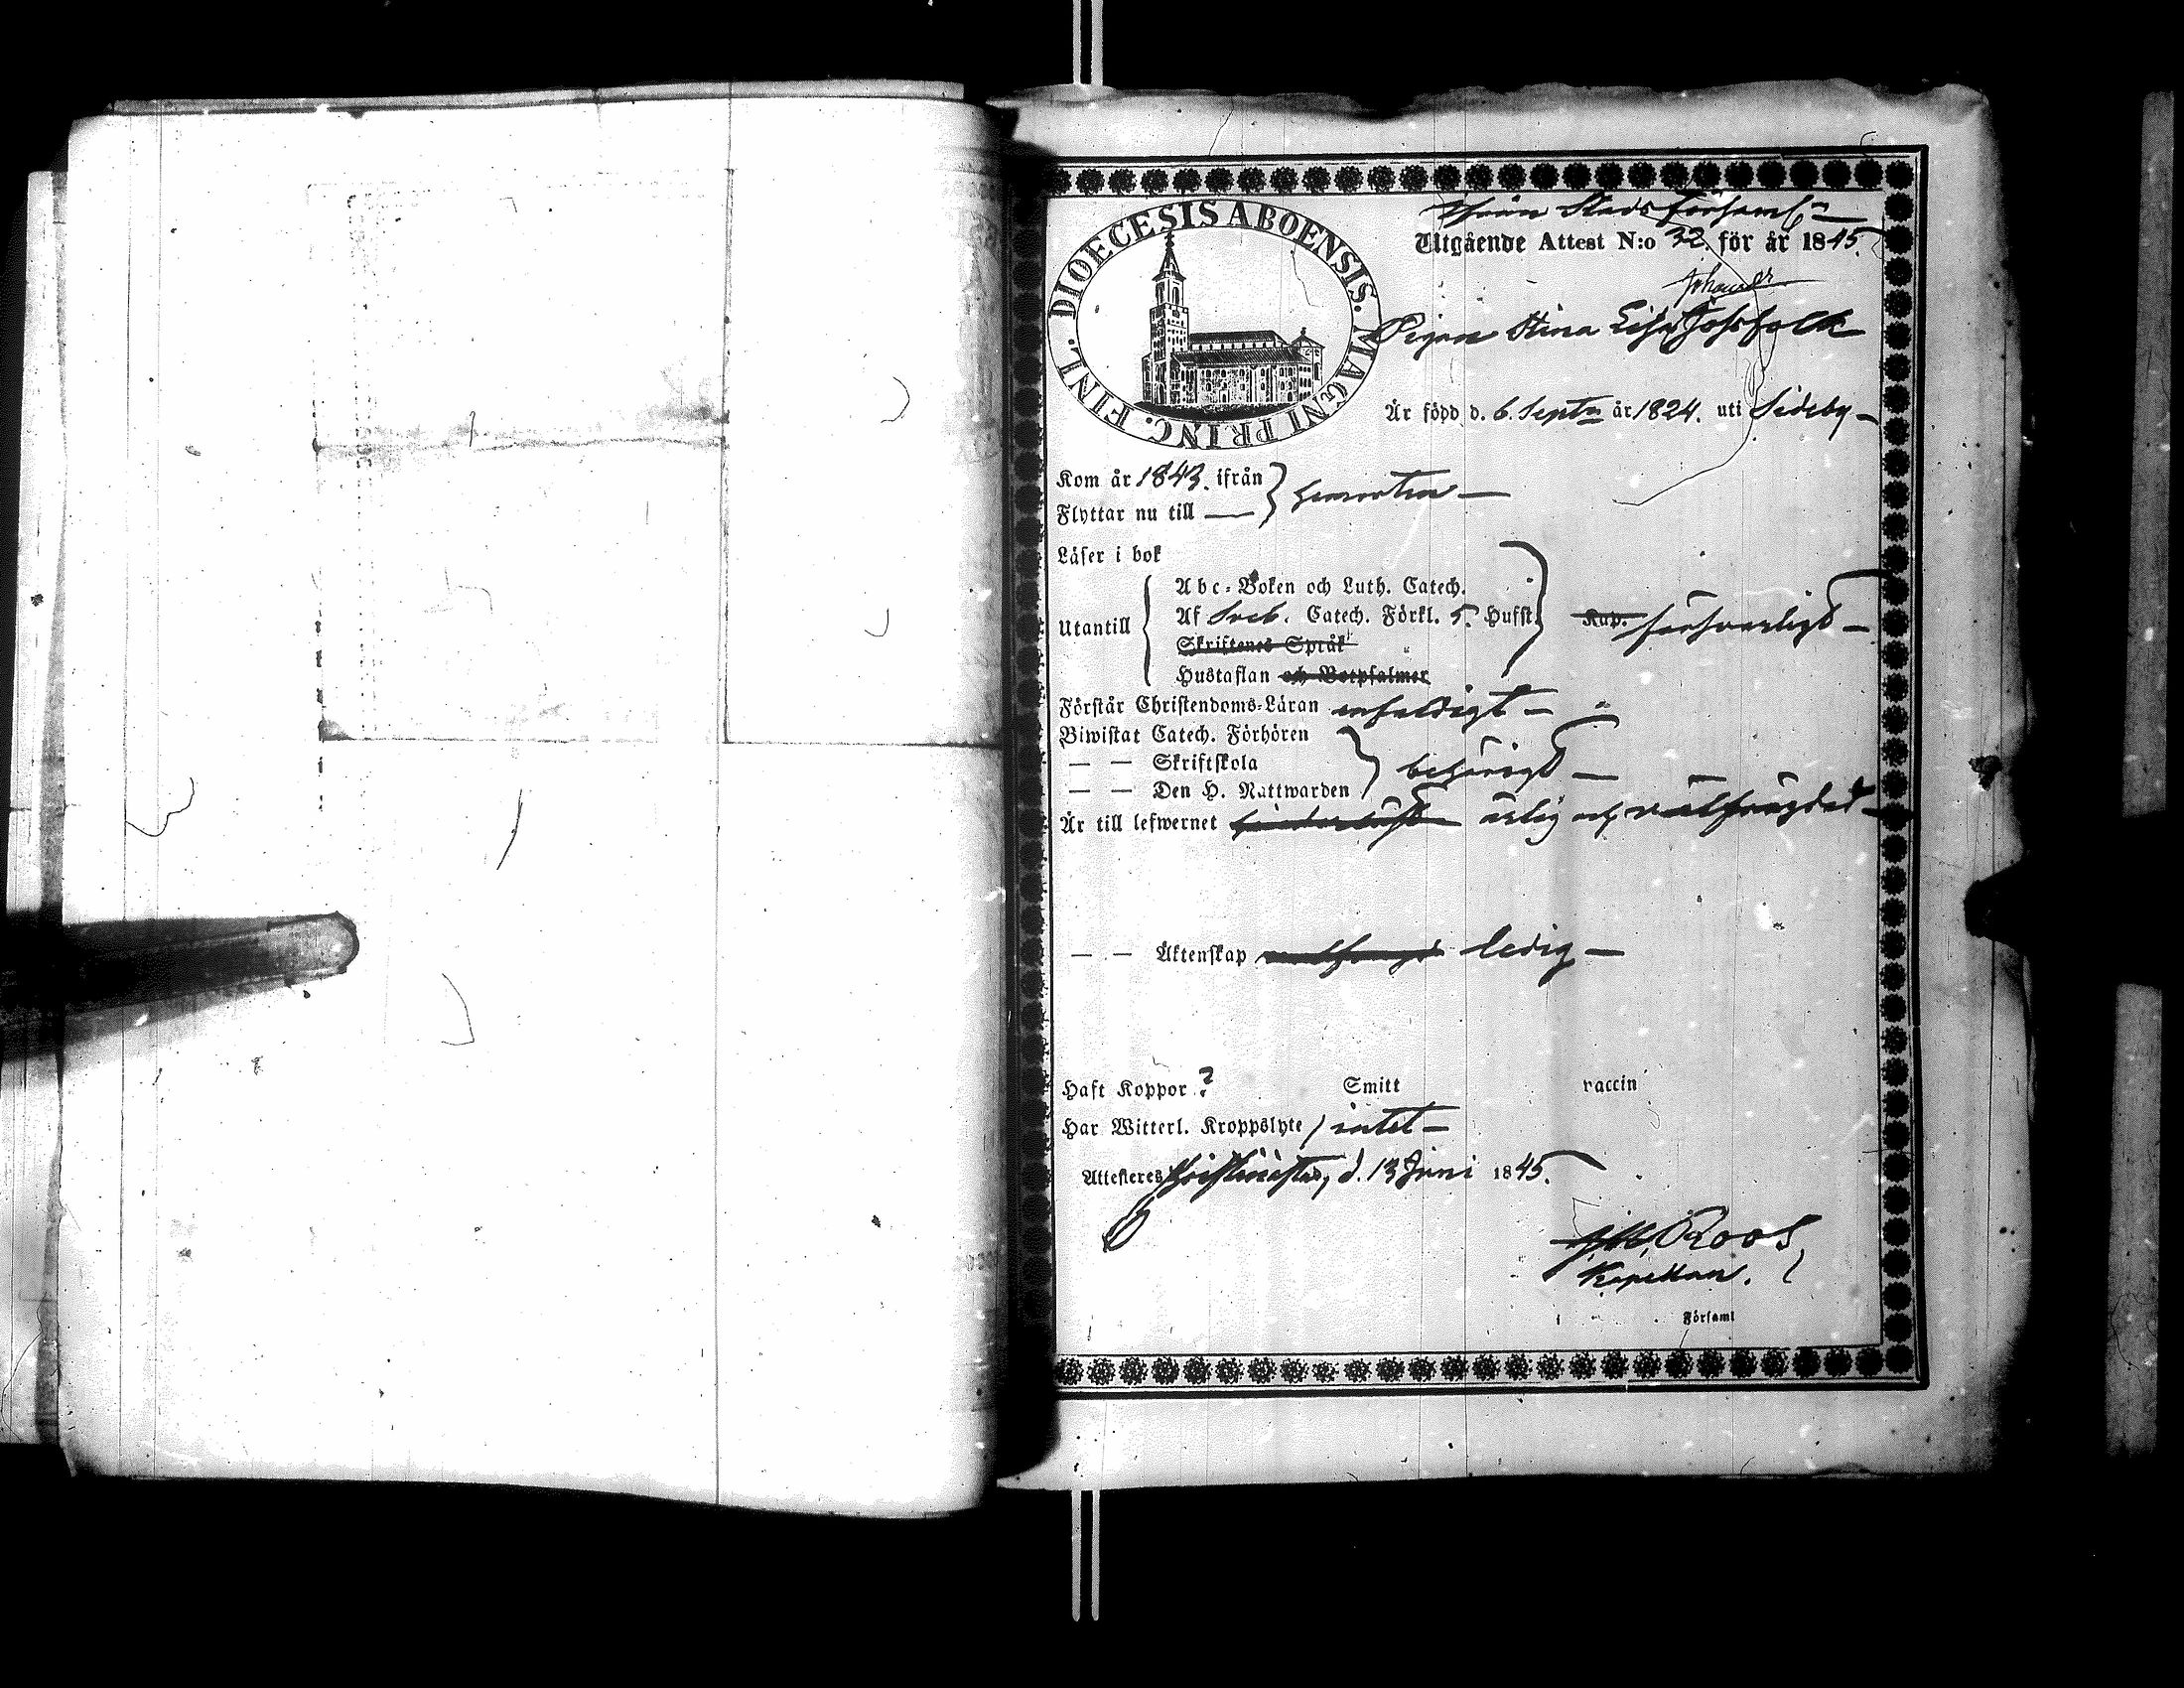 DIOECESIS ABOENSIS. MAGNI PRINC. FINL.
ifrån Stads Församl:
Utgående Attest N:o 32 för år 1845.
Pigan Stina Lisa
Är född d. 6. Septr år 1824. uti Sideby
Kom år 1843. ifrån
Flyttar nu till — } hemorten —
Läser i bok
Abc-Boken och Luth. Catech.
Utantill
Af Sveb. Catech. Förkl. 5. Hufst. Kap. försvarligt —
Skriftenes Språk
Hustaflan och Botpsalmer
Förstår Christendoms-Läran enfaldigt —
Biwistat Catech. Förhören
— — Skriftskola
behörigt —
— — Den H. Nattwarden
Är till lefwernet ärlig och välfrägdad —
— — Äktenskap ledig —
Haft Koppor ? Smitt vaccin
Har Witterl. Kroppslyte intet —
Attesteres Christinestad, d. 13 Juni 1845.
Roos,
Kapellan.
Församl